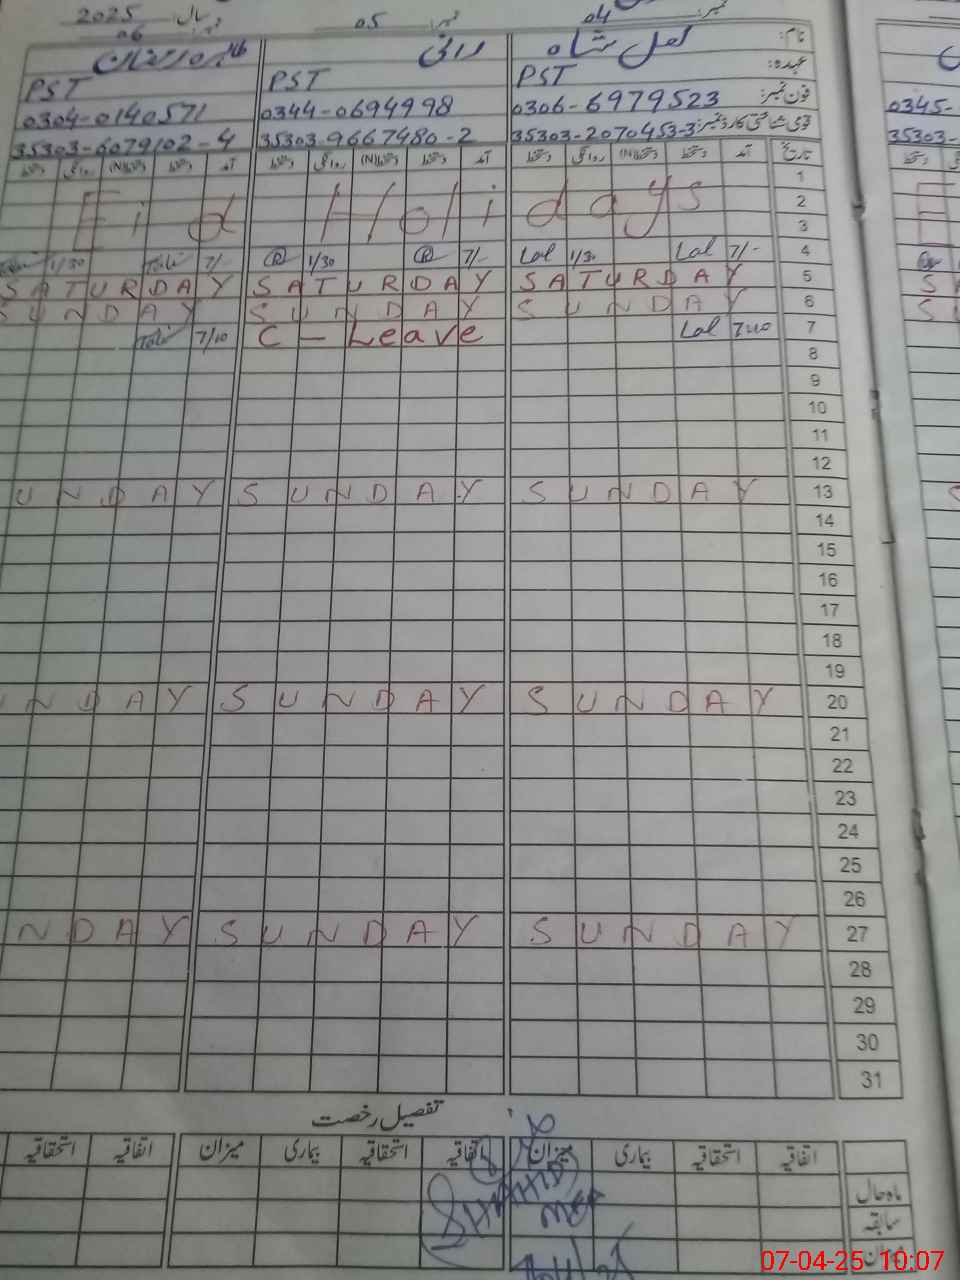 2025 سال: نمبر: 05 نمبر: 04
06
نام: لعل شاہ رانی
عہدہ: PST PST PST
فون نمبر: 0306-6979523 0344-0694998 0304-0140571 0345-
قومی شناختی کارڈ نمبر: 35303-2070453-3 35303-9667480-2 35303-6079102-4 35303-
تاریخ آمد دستخط (N)دستخط روانگی دستخط آمد دستخط (N)دستخط روانگی دستخط آمد دستخط (N)دستخط روانگی دستخط
1
Eid Holidays 2
3
1/30 7/- R 1/30 R 7/- Lal 1/30 Lal 7/- 4
SATURDAY SATURDAY SATURDAY 5
SUNDAY SUNDAY SUNDAY 6
7/10 C - Leave Lal 7:40 7
8
9
10
11
12
UNDAY SUNDAY SUNDAY 13
14
15
16
17
18
19
UNDAY SUNDAY SUNDAY 20
21
22
23
24
25
26
NDAY SUNDAY SUNDAY 27
28
29
30
31
تفصیل رخصت
اتفاقیہ استحقاقیہ بیماری میزان اتفاقیہ استحقاقیہ بیماری میزان اتفاقیہ استحقاقیہ
ماہ حال
سابقہ
میزان
SHAHID
07-04-25 10:07